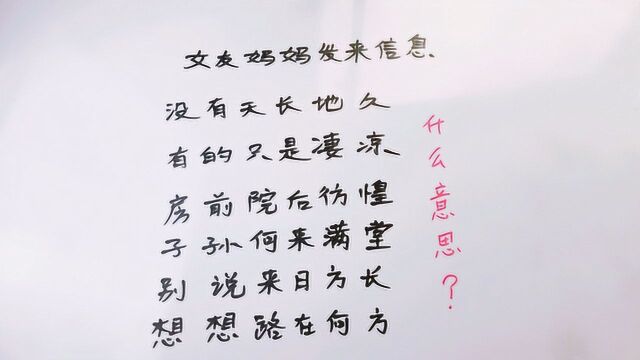 女友妈妈发来信息
没有天长地久
有的只是凄凉
房前院后彷惶
子孙何来满堂
别说来日方长
想想路在何方
什么意思？